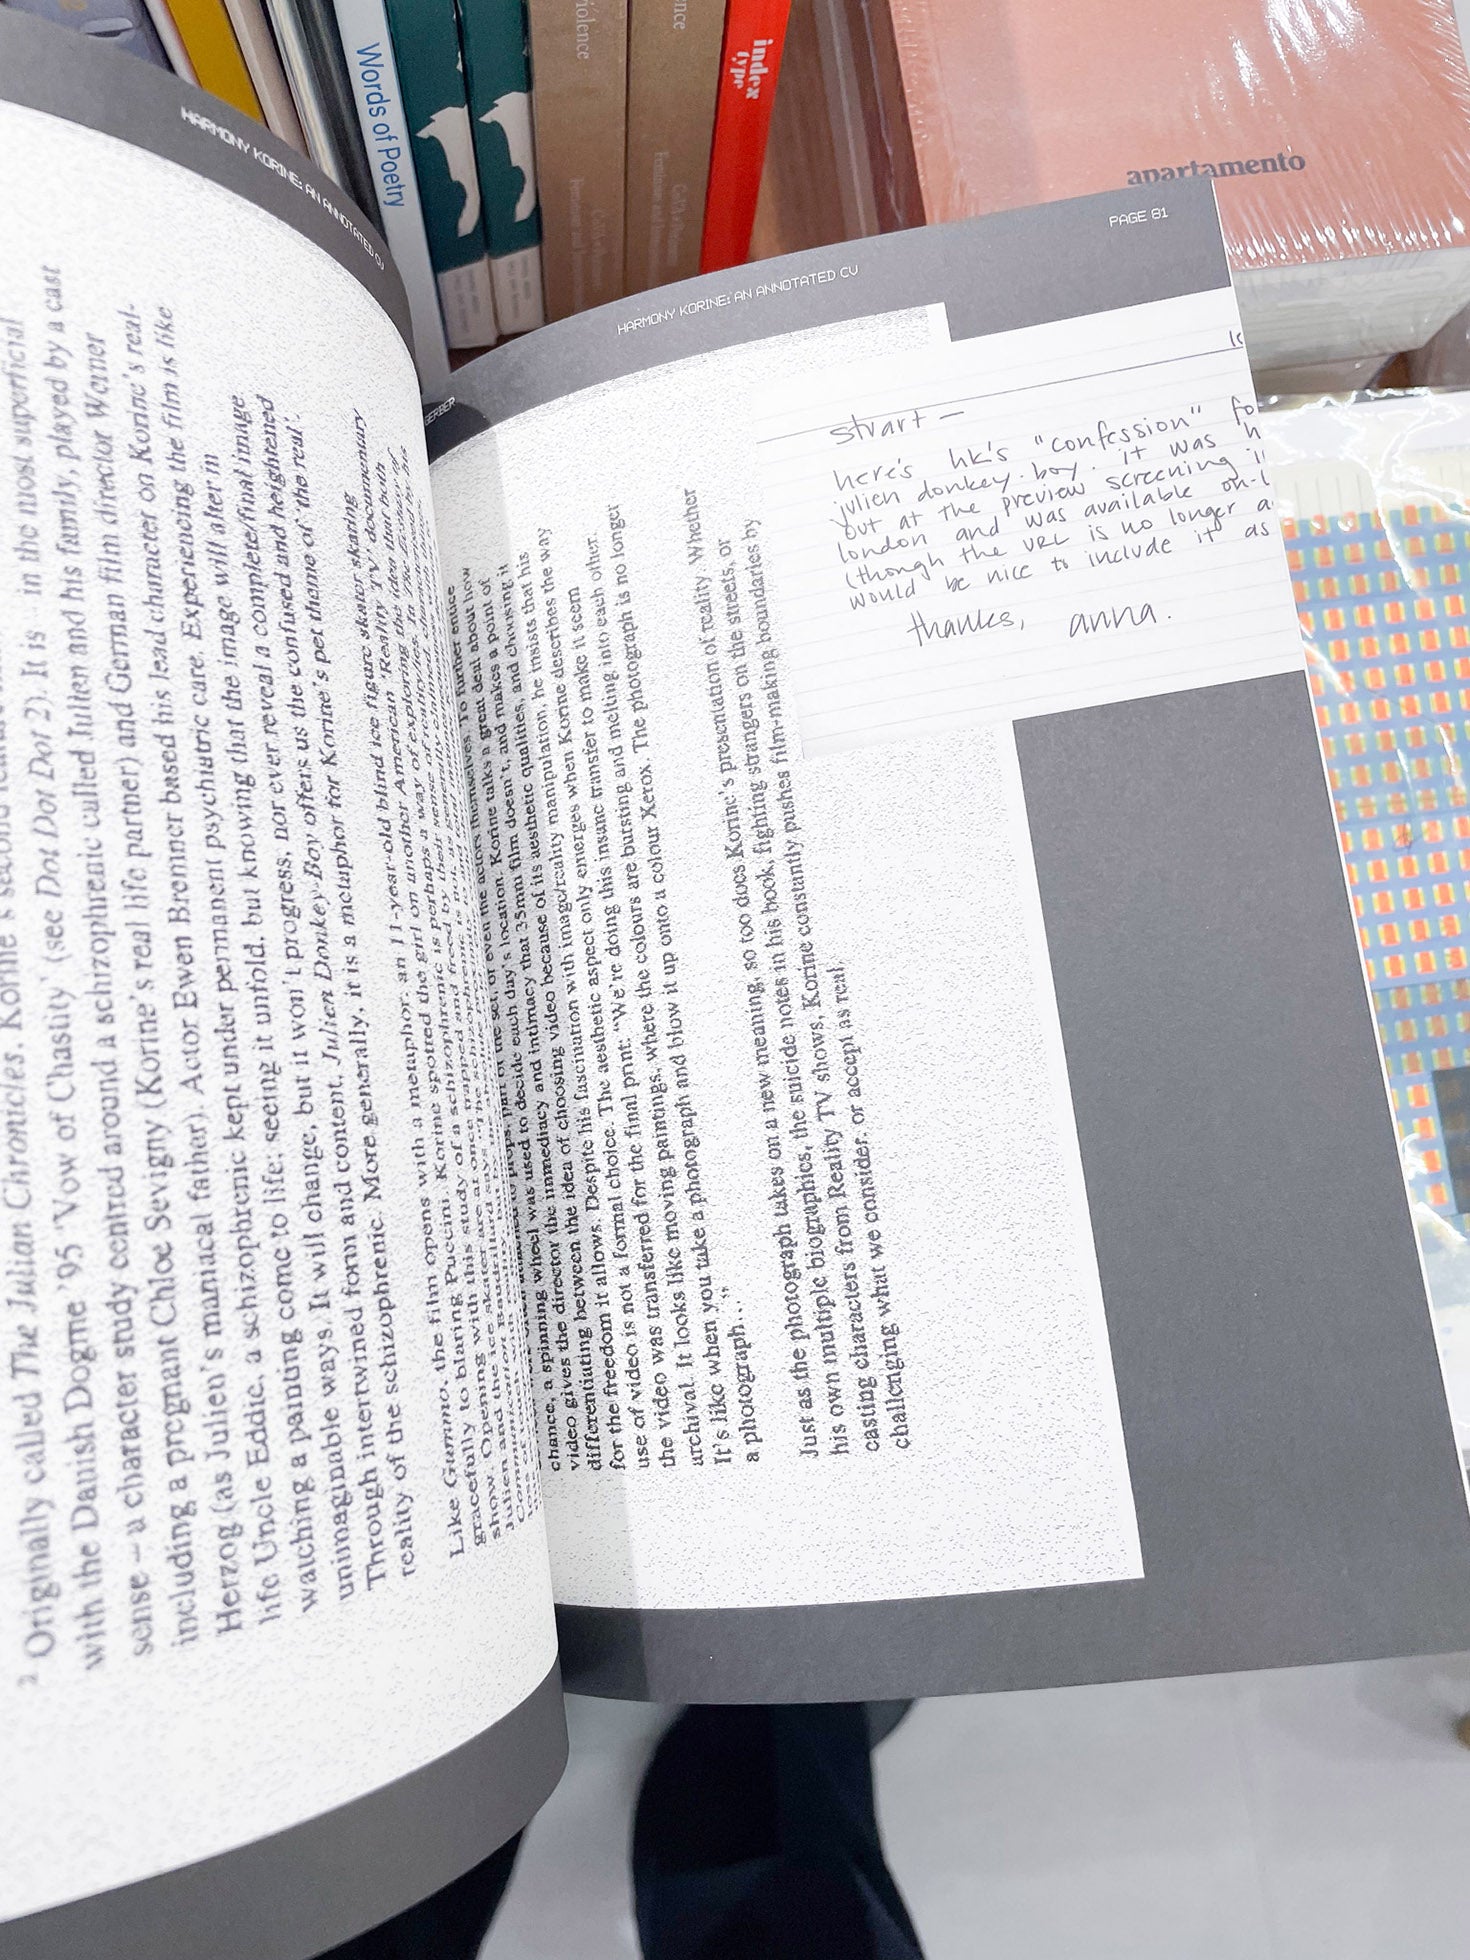 Words of Poetry
iolence
nce
index
type
apartamento
HARMONY KORINE: AN ANNOTATED CV
² Originally called The Julian Chronicles, Korine's second
with the Danish Dogme '95 'Vow of Chastity' (see Dot Dot Dot 2). It is in the most superficial
sense – a character study centred around a schizophrenic culled Julien and his family, played by a cast
including a pregnant Chloe Sevigny (Korine's real life partner) and German film director Werner
Herzog (as Julien's maniacal father). Actor Ewen Bremner based his lead character on Korine's real-
life Uncle Eddie, a schizophrenic kept under permanent psychiatric care. Experiencing the film is like
watching a painting come to life; seeing it unfold, but knowing that the image will alter in
unimaginable ways. It will change, but it won't progress, nor ever reveal a complete/final image
Through intertwined form and content, Julien Donkey-Boy offers us the confused and heightened
reality of the schizophrenic. More generally, it is a metaphor for Korine's pet theme of 'the real'.
Like Gummo, the film opens with a metaphor: an 11-year-old blind ice figure skater skating
gracefully to blaring Puccini. Korine spotted the girl on another American 'Reality TV' documentary
show. Opening with this study of a schizophrenic is perhaps a way of exploring the idea that both
Julien and the ice skater are at once trapped and freed by their sense of reality/ies. In The Ecstasy of
Communication Baudrillard says
GERBER
HARMONY KORINE: AN ANNOTATED CV
PAGE 81
part of the set, or even the actors themselves. To further entice
chance, a spinning wheel was used to decide each day's location. Korine talks a great deal about how
video gives the director the immediacy and intimacy that 35mm film doesn't, and makes a point of
differentiating between the idea of choosing video because of its aesthetic qualities, and choosing it
for the freedom it allows. Despite his fascination with image/reality manipulation, he insists that his
use of video is not a formal choice. The aesthetic aspect only emerges when Korine describes the way
the video was transferred for the final print: "We're doing this insane transfer to make it seem
archival. It looks like moving paintings, where the colours are bursting and melting into each other.
It's like when you take a photograph and blow it up onto a colour Xerox. The photograph is no longer
a photograph..."
Just as the photograph takes on a new meaning, so too does Korine's presentation of reality. Whether
his own multiple biographics, the suicide notes in his book, fighting strangers on the streets, or
casting characters from Reality TV shows, Korine constantly pushes film-making boundaries by
challenging what we consider, or accept as real.
stuart –
here's hk's "confession" fo
julien donkey-boy. it was h
out at the preview screening i
london and was available on-l
(though the URL is no longer a
would be nice to include it as
thanks, anna.